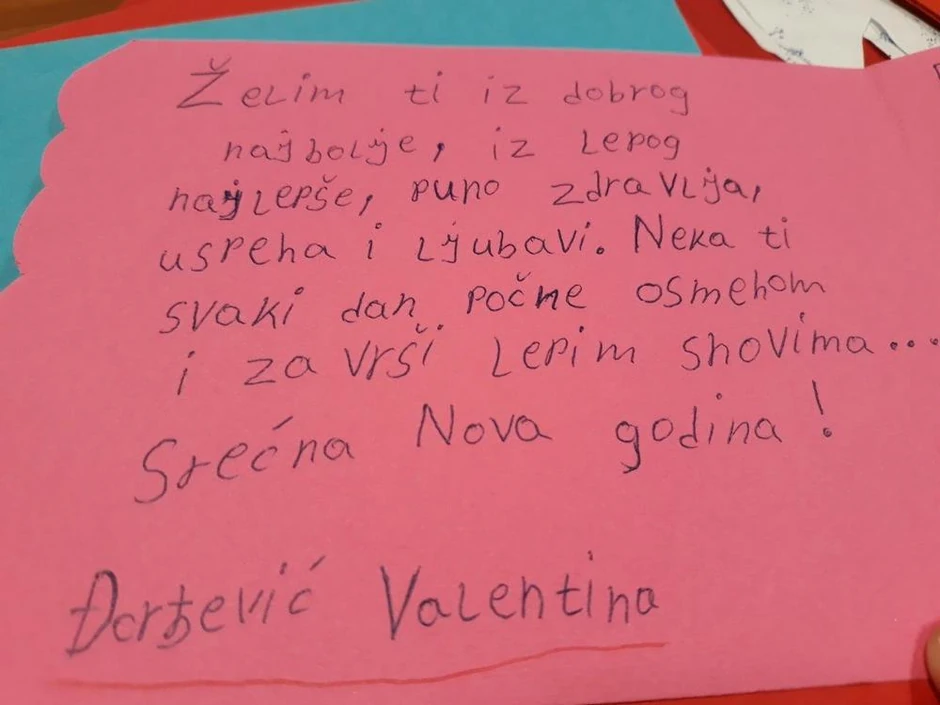 Želim ti iz dobrog
najbolje, iz lepog
najlepše, puno zdravlja,
uspeha i ljubavi. Neka ti
svaki dan počne osmehom
i završi lepim snovima...
Srećna Nova godina!
Đorđević Valentina